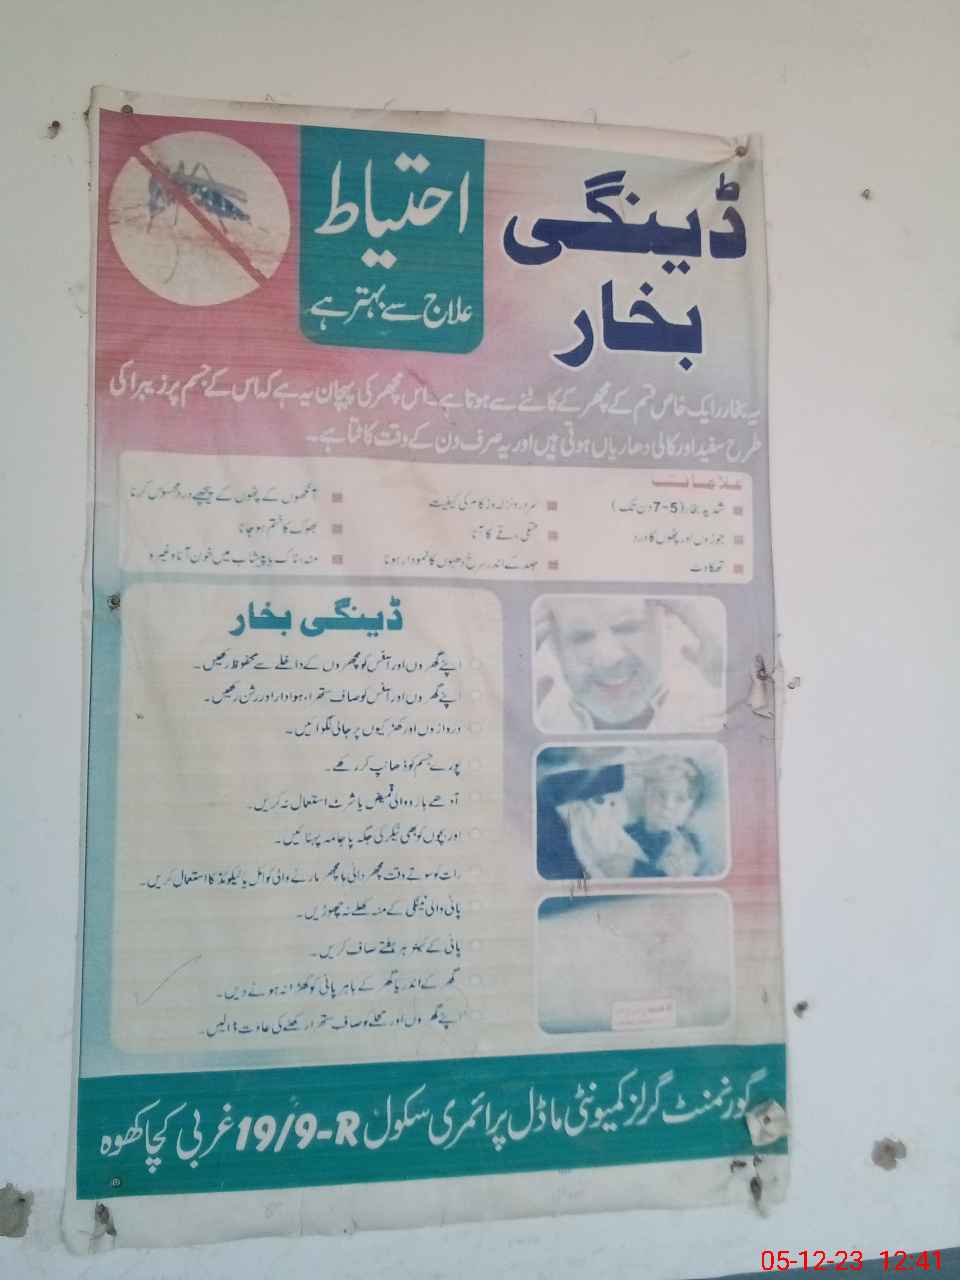 ڈینگی
بخار
احتیاط
علاج سے بہتر ہے
یہ بخار ایک خاص قسم کے مچھر کے کاٹنے سے ہوتا ہے۔ اس مچھر کی پہچان یہ ہے کہ اس کے جسم پر زیبرا کی
طرح سفید اور کالی دھاریاں ہوتی ہیں اور یہ صرف دن کے وقت کاٹتا ہے۔
علامات
شدید بخار (5-7 دن تک)
جوڑوں اور پٹھوں کا درد
تھکاوٹ
سر درد نزلہ و زکام کی کیفیت
متلی، قے کا آنا
جلد کے اندر سرخ دھبوں کا نمودار ہونا
آنکھوں کے پٹھوں کے پیچھے درد محسوس کرنا
بھوک کا ختم ہو جانا
منہ، ناک یا پیشاب میں خون آنا وغیرہ
ڈینگی بخار
اپنے گھروں اور آفس کو مچھروں کے داخلے سے محفوظ رکھیں۔
اپنے گھروں اور آفس کو صاف ستھرا، ہوادار اور روشن رکھیں۔
دروازوں اور کھڑکیوں پر جالی لگوائیں۔
پورے جسم کو ڈھانپ کر رکھے۔
آدھے بازو والی قمیض یا شرٹ استعمال نہ کریں۔
اور بچوں کو بھی نیکر کی جگہ پاجامہ پہنائیں۔
رات کو سوتے وقت مچھر دانی یا مچھر مارنے والی کوائل یا لیکوئڈ کا استعمال کریں۔
پانی والی ٹینکی کے منہ کھلے نہ چھوڑیں۔
پانی کے کولر ہر ہفتے صاف کریں۔
گھر کے اندر یا گھر کے باہر پانی کو کھڑا نہ ہونے دیں۔
اپنے گھروں اور محلے کو صاف ستھرا رکھنے کی عادت ڈالیں۔
گورنمنٹ گرلز کمیونٹی ماڈل پرائمری سکول 19/9-R غربی کچا کھوہ
05-12-23 12:41